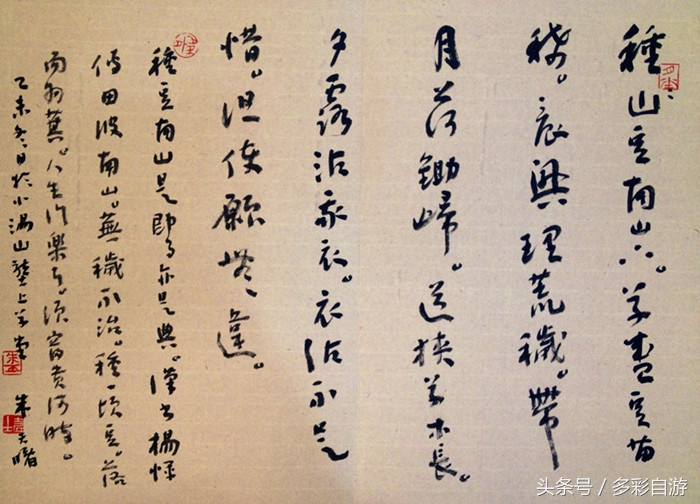 種山豆南山下。草盛豆苗
稀。晨興理荒穢。帶
月荷鋤歸。道狹草木長。
夕露沾我衣。衣沾不足
惜。但使願無違。
種豆南山是即事亦是興。漢書楊惲
傳田彼南山。蕪穢不治。種一頃豆。落
而為萁。人生行樂耳。須富貴何時。
乙未冬日於小湯山壟上草堂 朱天曙
头条号 / 多彩自游